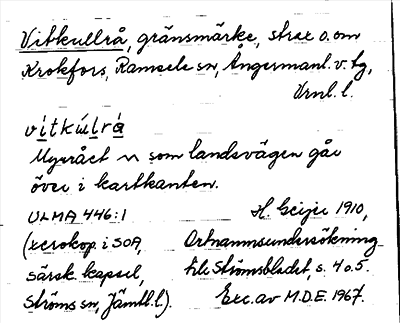 Vitkullrå, gränsmärke, strax o. om
Krokfors, Ramsele sn, Ångermanl. v. tg,
Vrnl. l.
vitkúlrá
Myrrået som landsvägen går
över i kartkanten.
ULMA 446:1
(xerokop. i SOA,
särsk. kapsel,
Ströms sn, Jämtl. l).
H. Geijer 1910,
Ortnamnsundersökning
från Strömsbladet s. 4 o. 5.
Exc. av M.D.E. 1967.